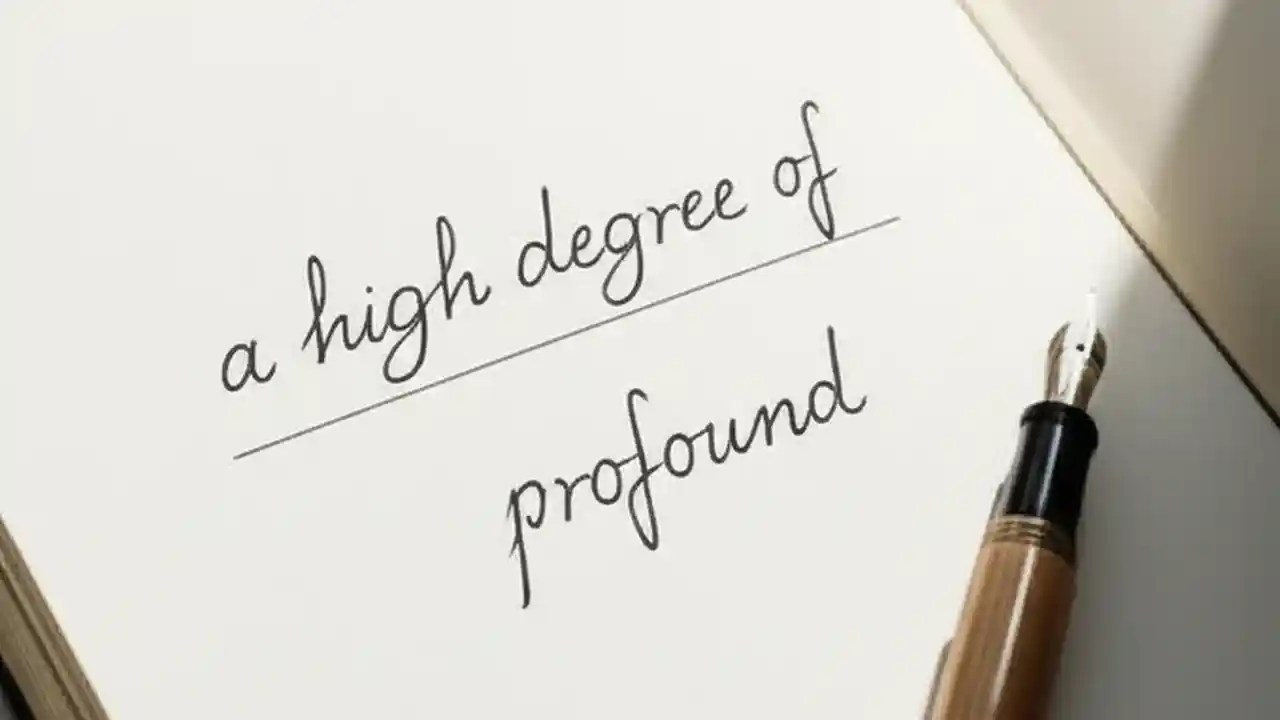 a high degree of
profound